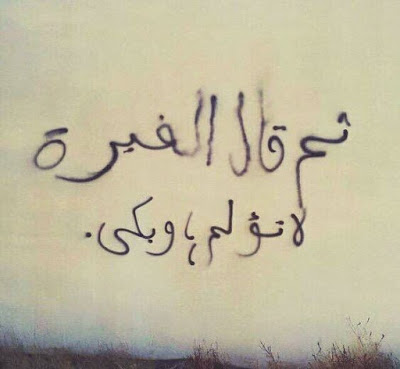 ثم قال الغيرة
لا تؤلم وبكى.